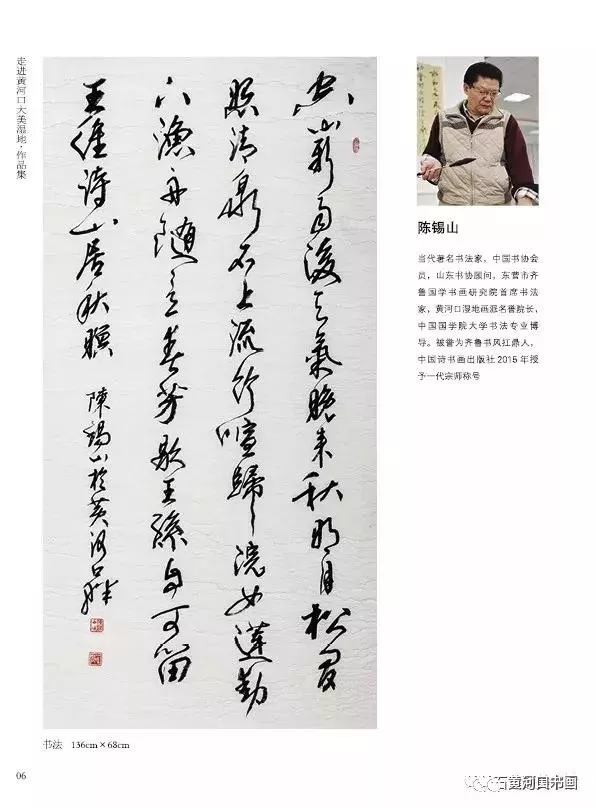 走进黄河口大美湿地·作品集
空山新雨後天氣晚来秋明月松間
照清泉石上流竹喧歸浣女蓮動
下漁舟随意春芳歇王孫自可留
王維诗山居秋暝 陳錫山於黄河口
陈锡山
当代著名书法家，中国书协会
员，山东书协顾问，东营市齐
鲁国学书画研究院首席书法
家，黄河口湿地画派名誉院长，
中国国学院大学书法专业博
导。被誉为齐鲁书风扛鼎人，
中国诗书画出版社 2015 年授
予一代宗师称号
书法 136cm×68cm
06